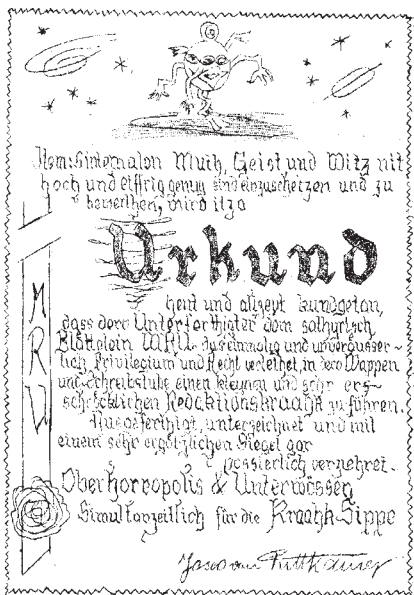 Geist und Witz nit
hoch und eiffrig genug sind einzuschetzen und zu
bewerthen, wird itzo
Urkund
heut und allzeyt kundgetan,
dass derr Unterferthigter dem sathyrisch
Blättelein MRU das einmalig und unveräusser-
lich Privilegium und Recht verleihet, in derr Wappen
und Schreibstube einen kleynen und sehr ers-
schröcklichen Redaktionskraahk zu führen.
Ausgeferthigt, unterzeichnet und mit
einem sehr ergötzlichen Siegel gar
possierlich verziehret.
Oberhorropolis & Unterwössen
Simultanzeitlich für die Kraahk-Sippe
MRU